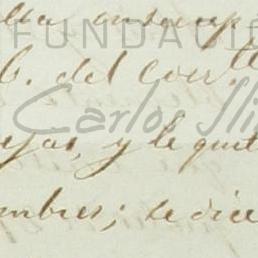 FUNDACIÓ
6. del corr.te
Carlos Sli
ejas, y le quit
mbres; se dice